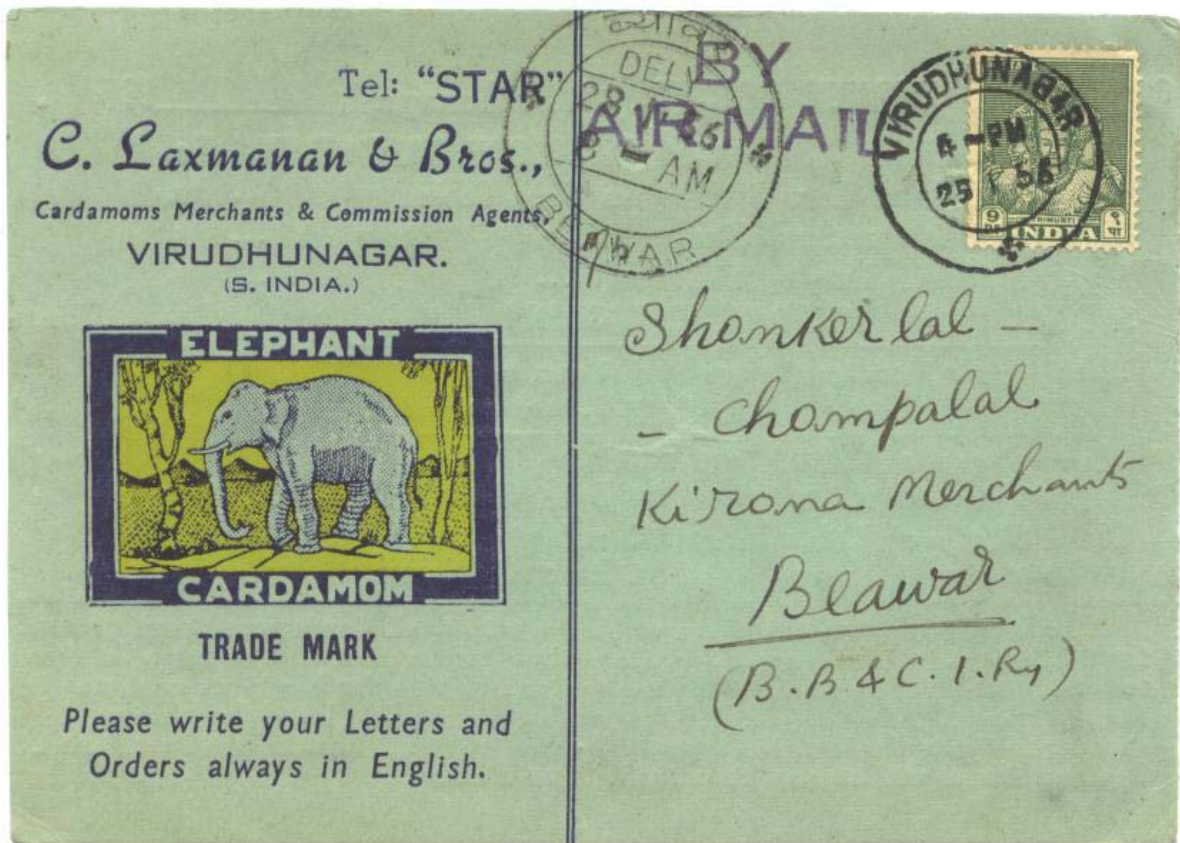 Tel: "STAR"
C. Laxmanan & Bros.,
Cardamoms Merchants & Commission Agents,
VIRUDHUNAGAR.
(S. INDIA.)
ELEPHANT
CARDAMOM
TRADE MARK
Please write your Letters and
Orders always in English.
DELY
28
8 - AM
BEAWAR
BY
AIR MAIL
VIRUDHUNAGAR
4 - PM
25
9 Ps
TRIMURTI
९ पा
INDIA
Shonkerlal -
- Chompalal
Kirona Merchants
Beawar
(B.B & C.I.Ry)